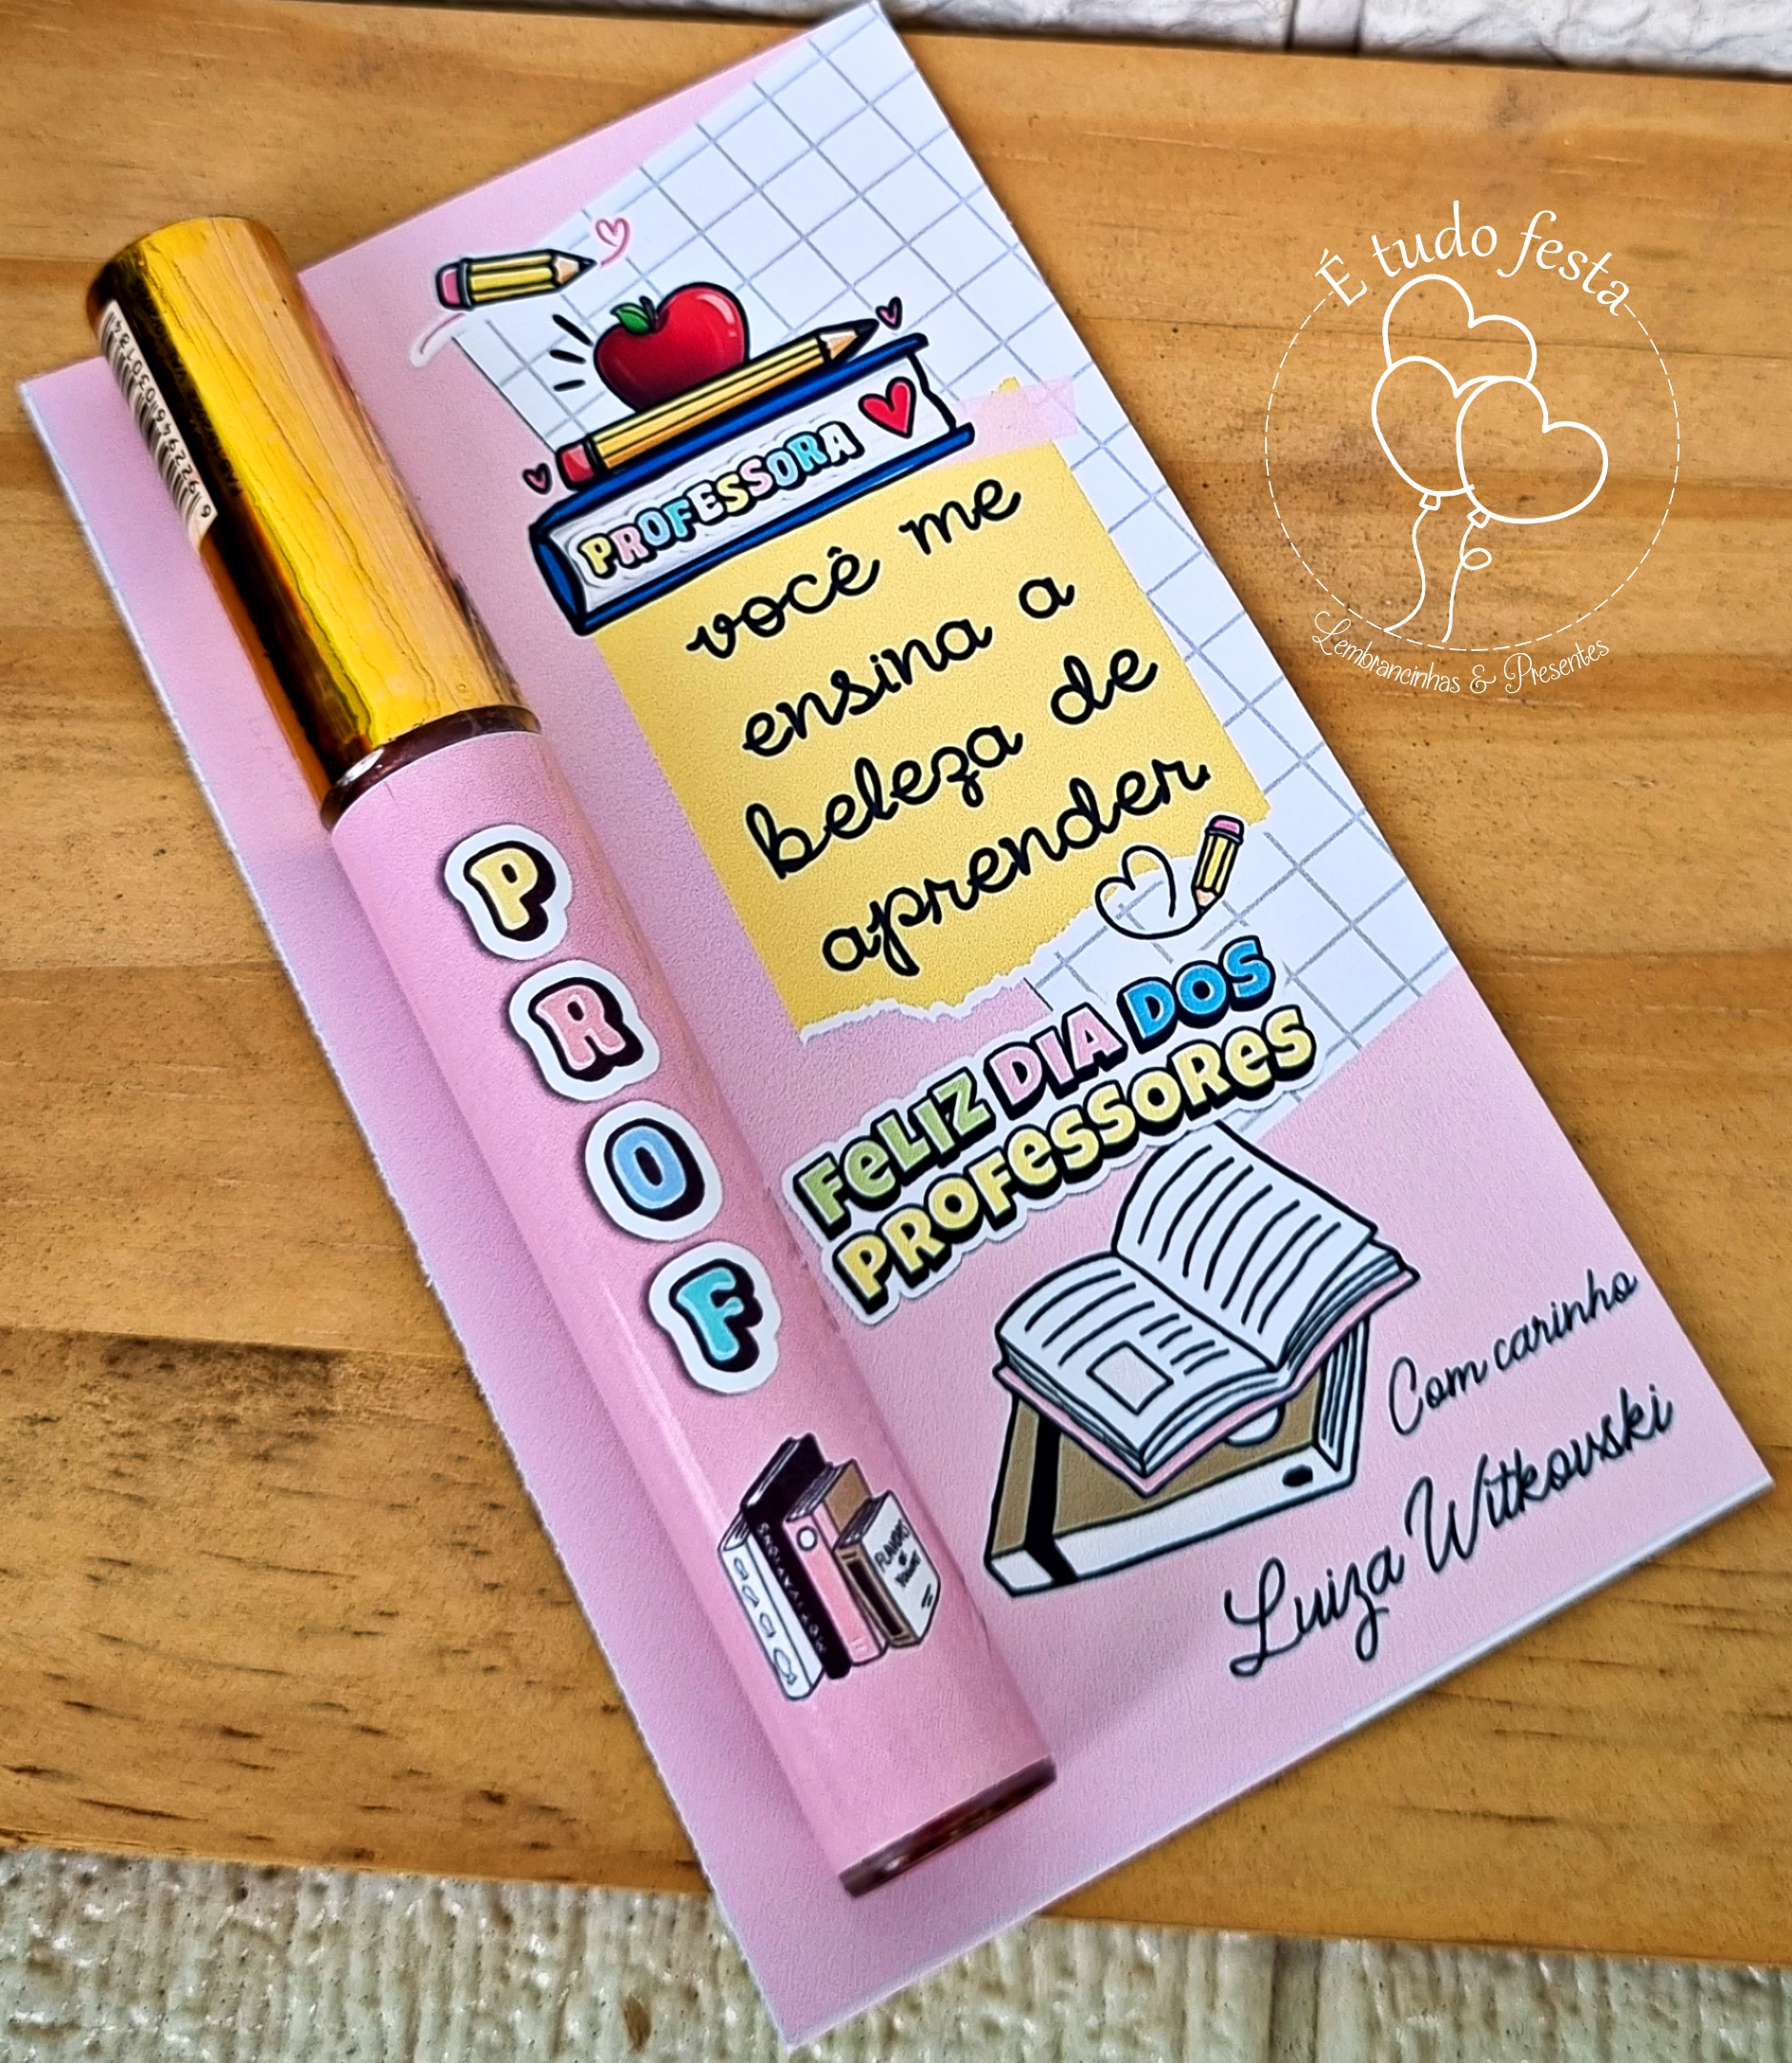 É tudo festa
Lembrancinhas & Presentes
PROFESSORA
você me
ensina a
beleza de
aprender
FELIZ DIA DOS
PROFESSORES
Com carinho
Luiza Witkovski
P
R
O
F